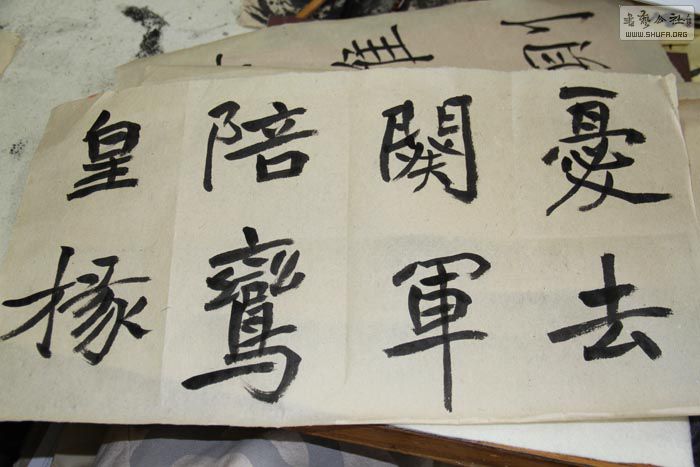 憂去
關軍
陪鸞
皇掾
書藝公社
WWW.SHUFA.ORG